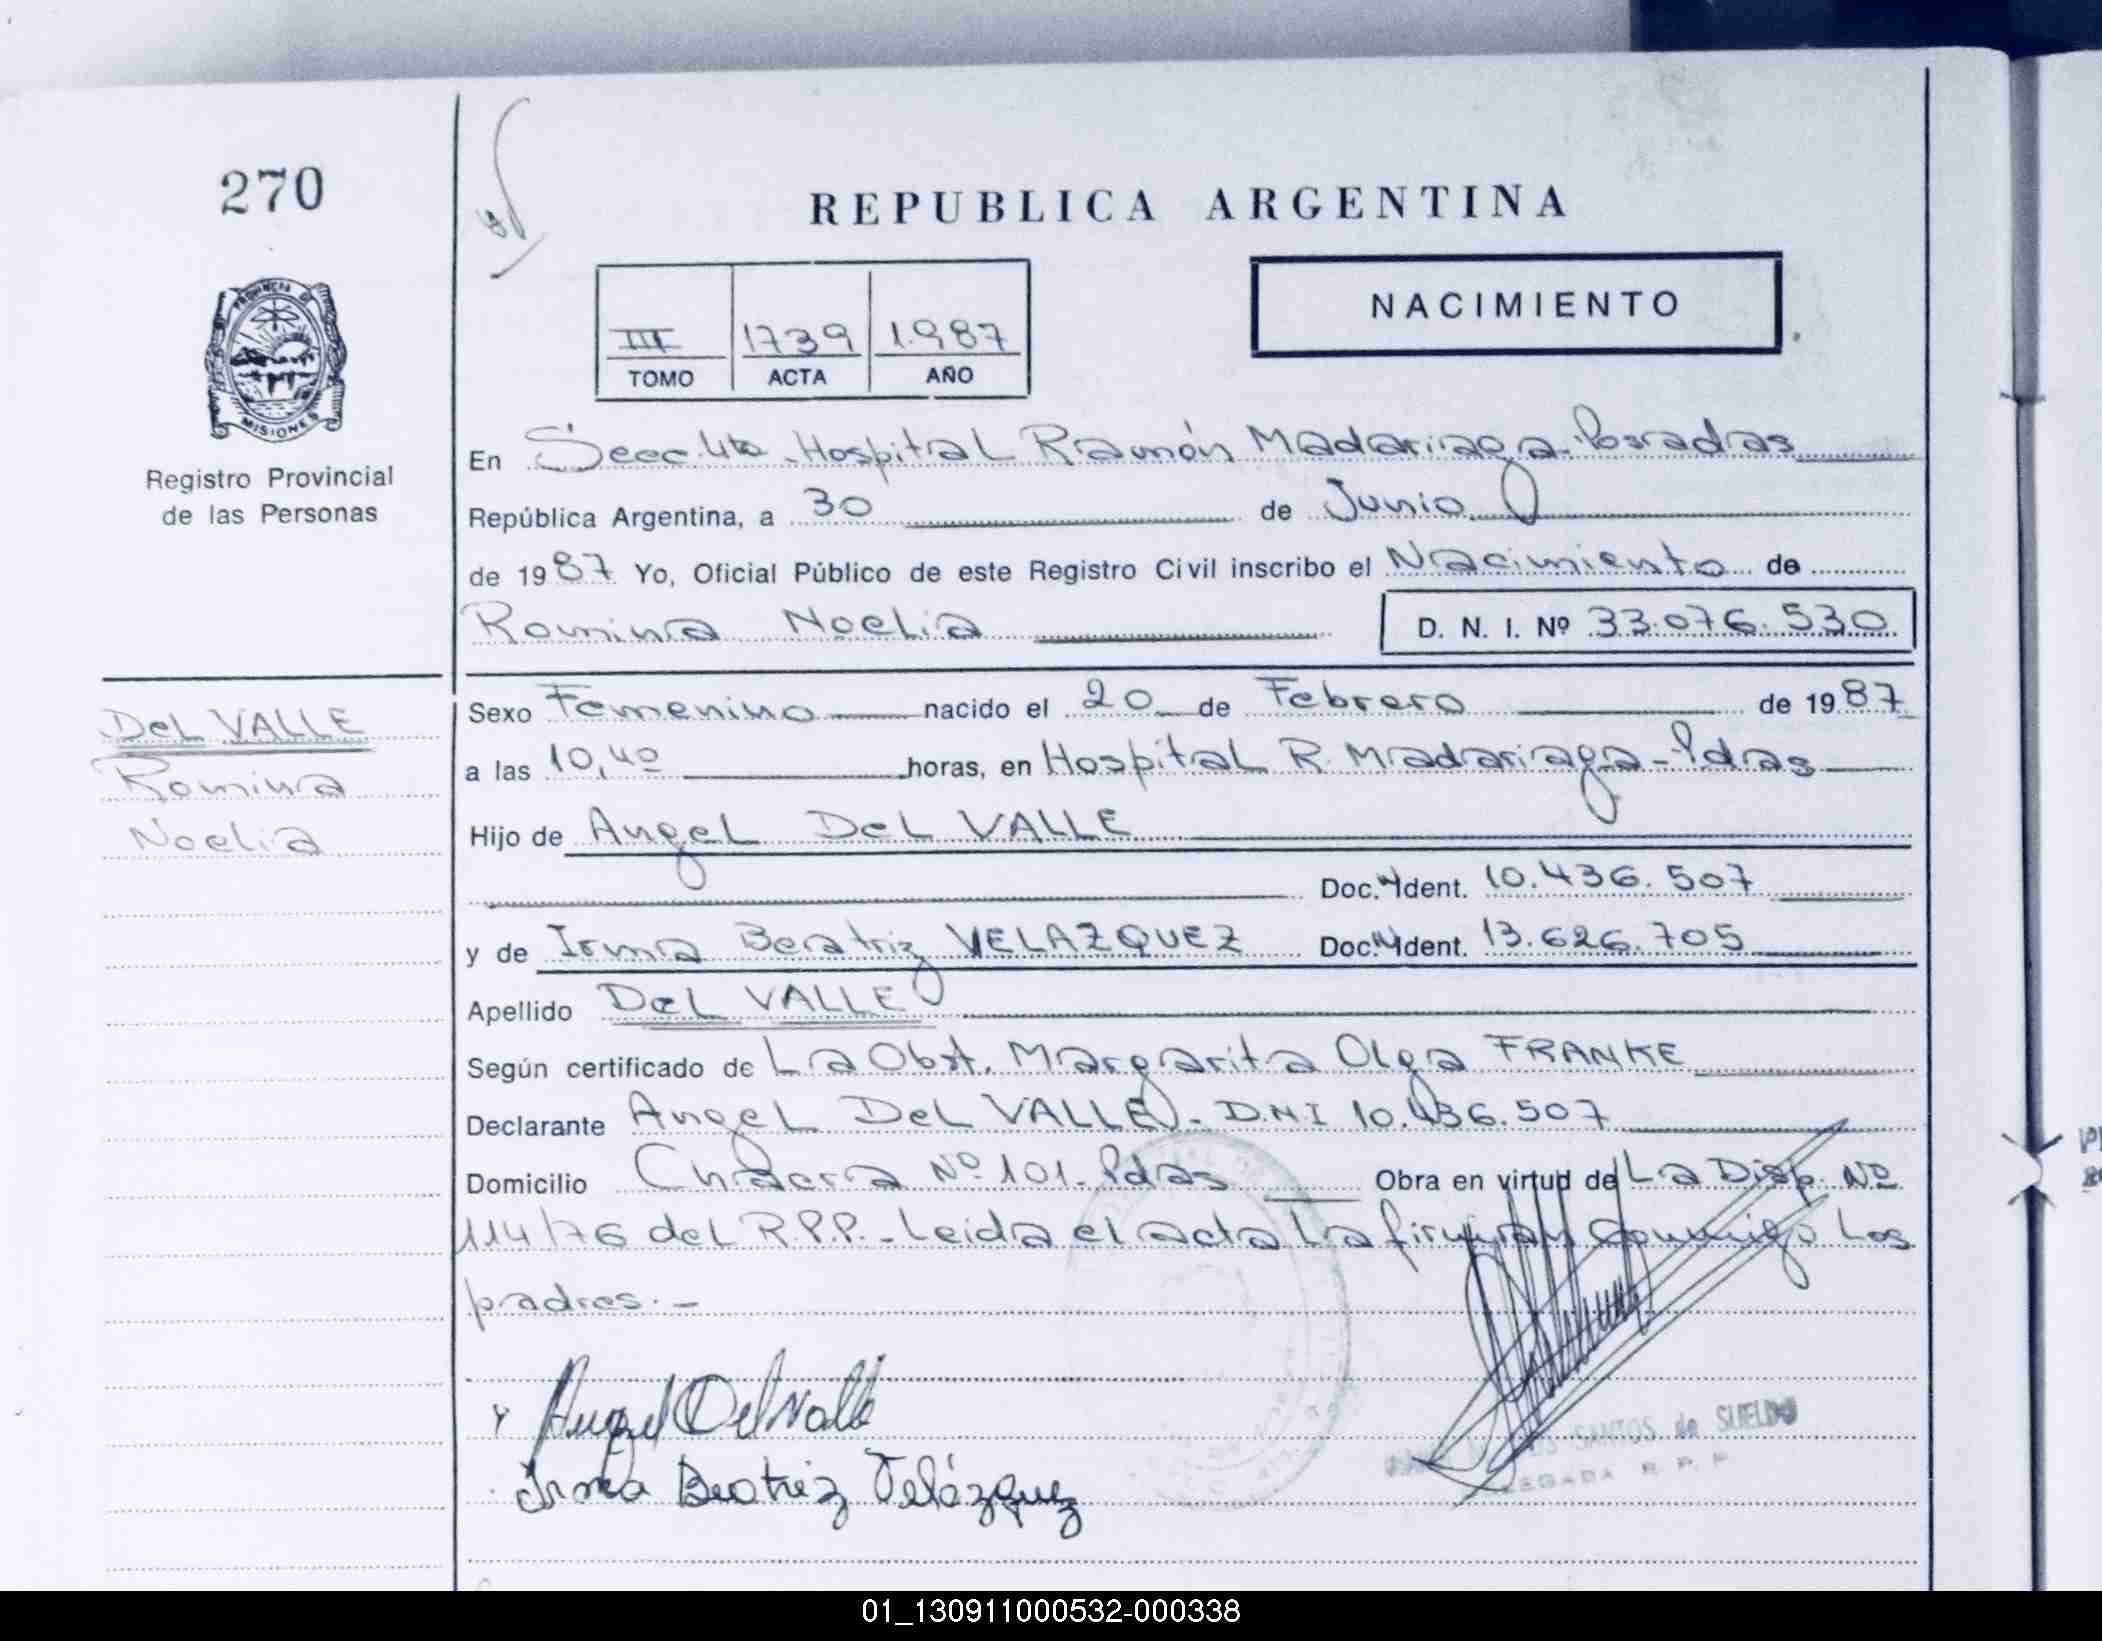 270
REPUBLICA ARGENTINA
NACIMIENTO
III 1739 1.987
TOMO ACTA AÑO
PROVINCIA DE
MISIONES
Registro Provincial
de las Personas
En Secc. 4ta - Hospital Ramón Madariaga - Posadas
República Argentina, a 30 de Junio
de 1987 Yo, Oficial Público de este Registro Civil inscribo el Nacimiento de
Romina Noelia D. N. I. Nº 33.076.530
Del VALLE
Romina
Noelia
Sexo Femenino nacido el 20 de Febrero de 1987
a las 10,40 horas, en Hospital R. Madariaga - Pdas
Hijo de Angel Del VALLE
Doc. Ident. 10.436.507
y de Irma Beatriz VELAZQUEZ Doc. Ident. 13.626.705
Apellido Del VALLE
Según certificado de La Obst. Margarita Olga FRANKE
Declarante Angel Del VALLE - D.N.I 10.436.507
Domicilio Chacra Nº 101 - Pdas Obra en virtud de La Disp. Nº
114/76 del R.P.P. - Leida el acta la firman conmigo los
padres. -
Angel Del Valle
Irma Beatriz Velázquez
SANTOS de SUELDO
R. P. P.
01_130911000532-000338